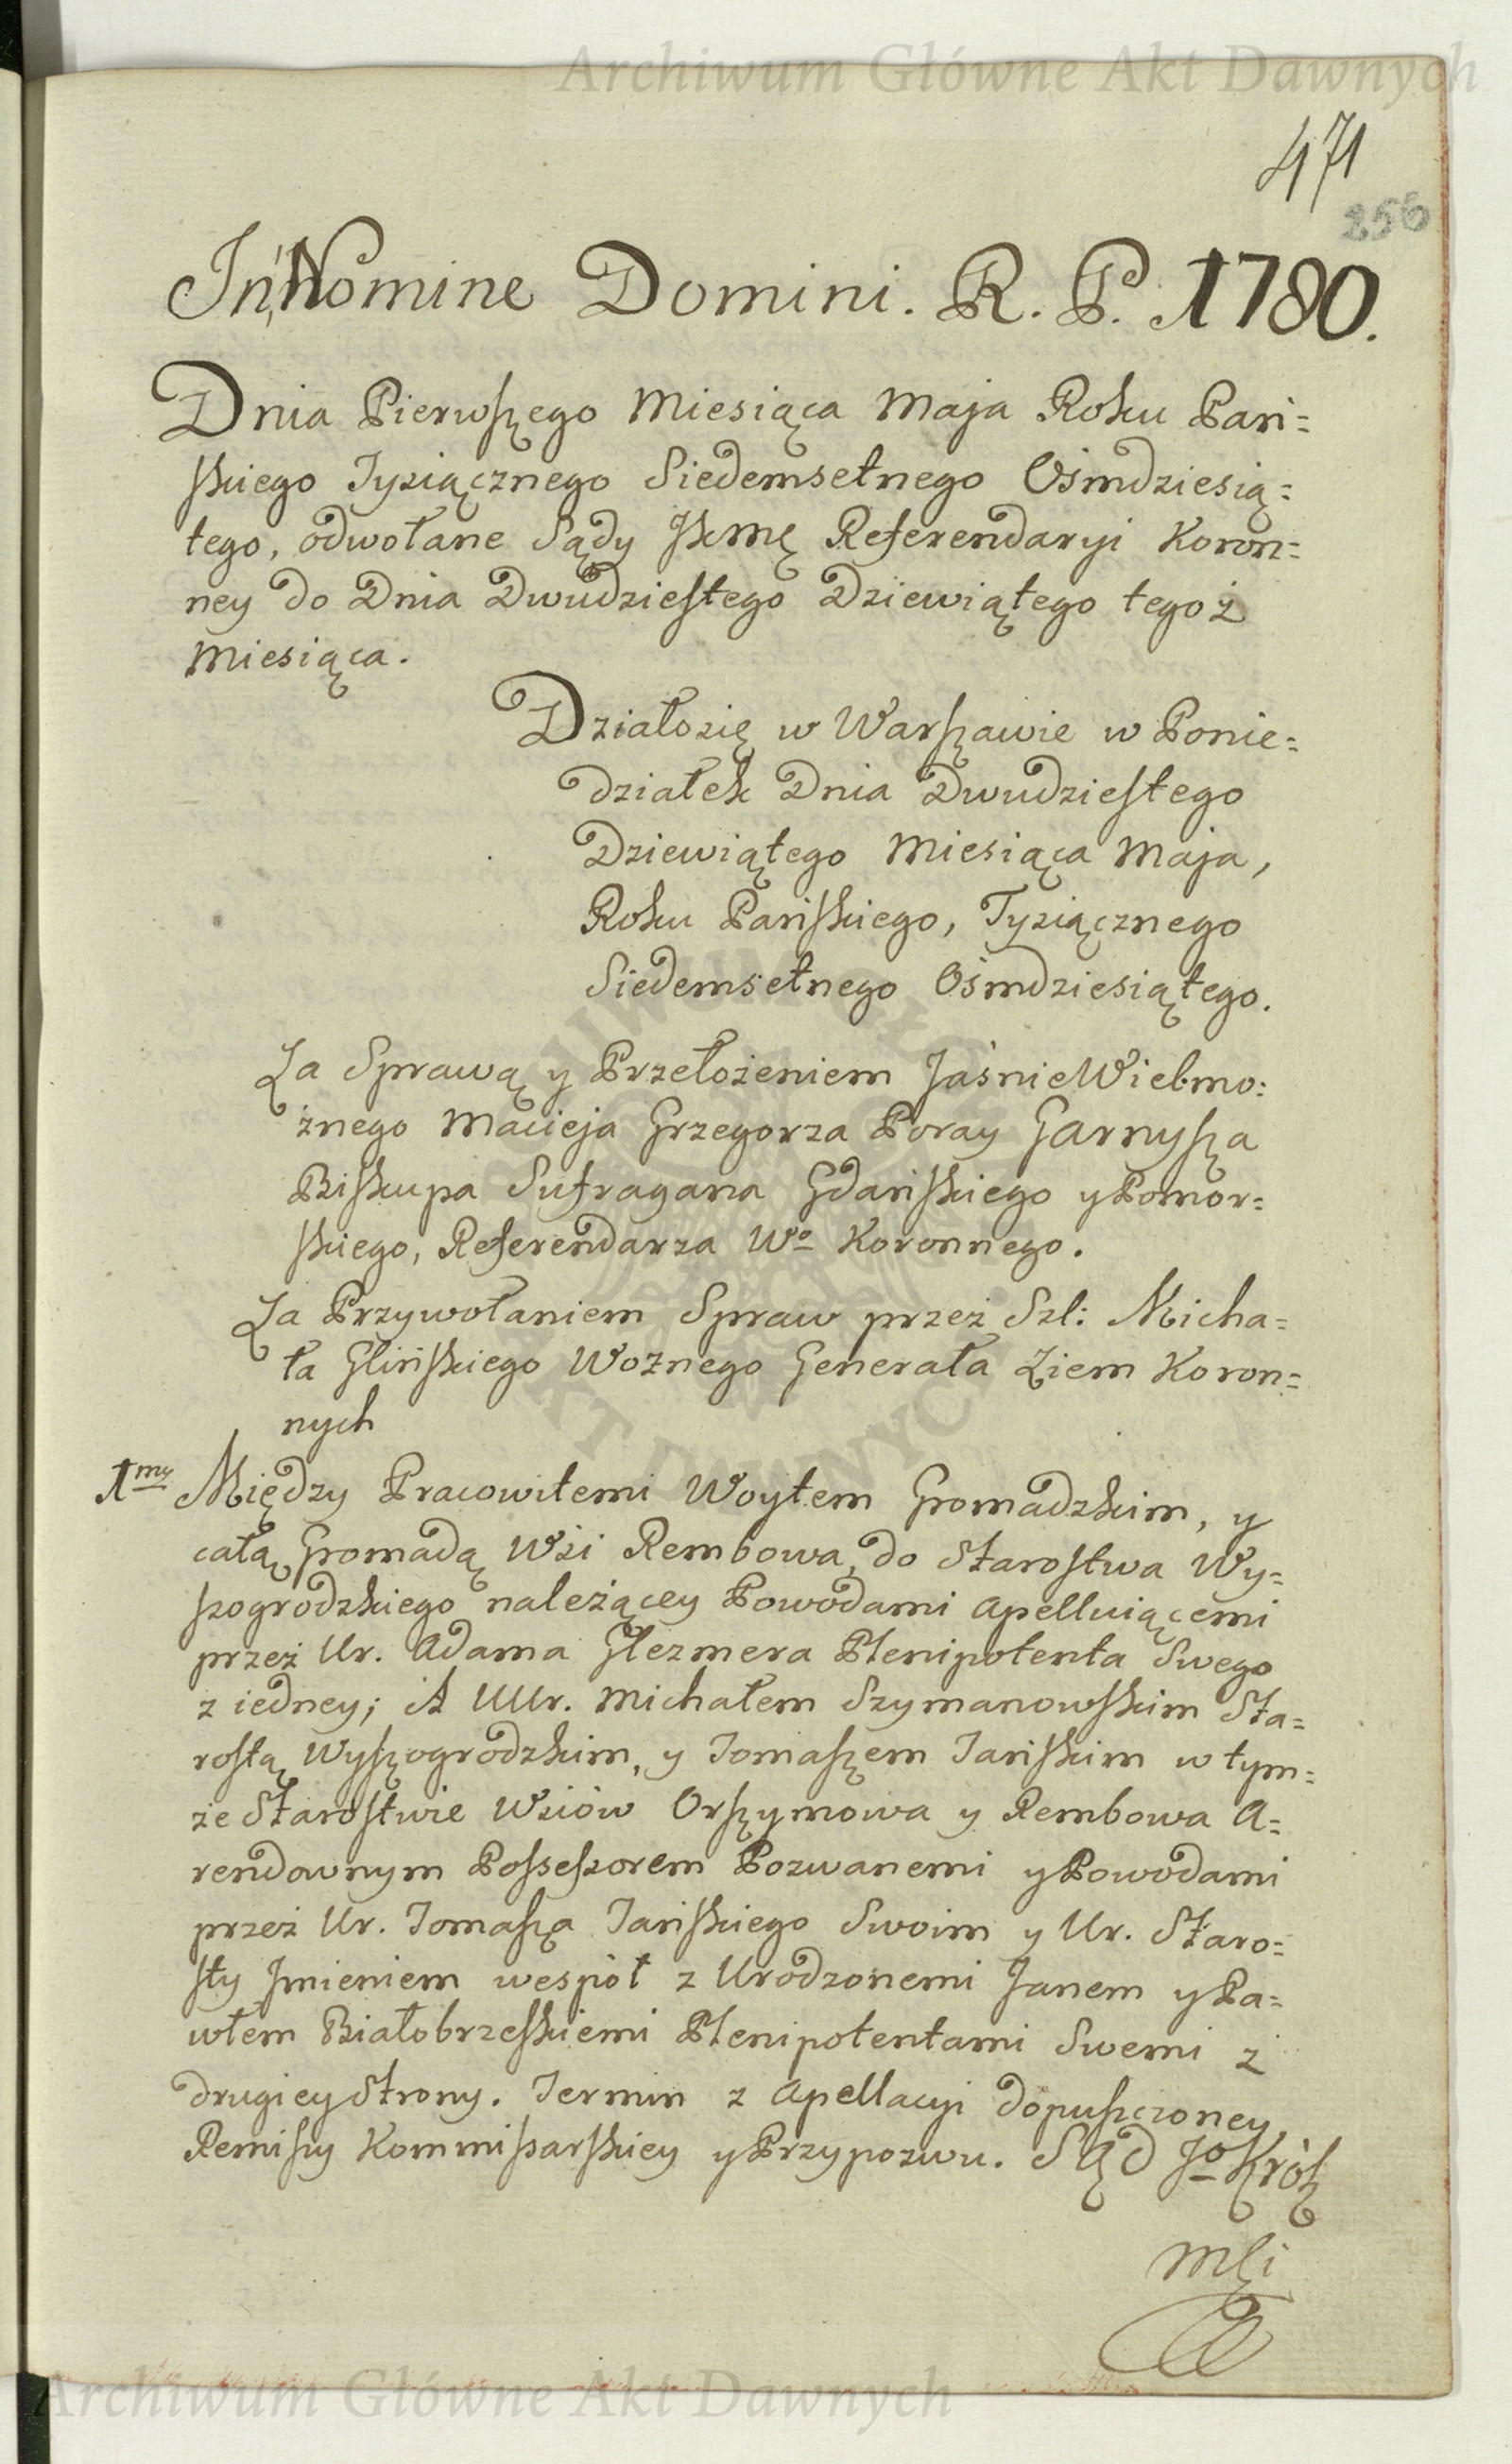 Archiwum Główne Akt Dawnych
471
256
In Nomine Domini. R. P. 1780.
Dnia Pierwszego Miesiąca Maja Roku Pań=
skiego Tysiącznego Siedemsetnego Ośmdziesią=
tego, odwołane Sądy JKMę Referendaryi Koron=
ney do Dnia Dwudziestego Dziewiątego tegoż
Miesiąca.
Działosię w Warszawie w Ponie=
działek Dnia Dwudziestego
Dziewiątego Miesiąca Maja,
Roku Pańskiego, Tysiącznego
Siedemsetnego Ośmdziesiątego.
Za Sprawą y Przełożeniem JaśnieWielmo:
żnego Macieja Grzegorza Poray Garnysza
Biskupa Sufragana Gdańskiego y Pomor=
skiego, Referendarza Wo Koronnego.
Za Przywołaniem Spraw przez Szl: Micha=
ła Glińskiego Woźnego Generała Ziem Koron=
nych
1my Między Pracowitemi Woytem Gromadzkim, y
całą Gromadą Wsi Rembowa, do Starostwa Wy=
szogrodzkiego należącey Powodami Apelluiącemi
przez Ur. Adama Glezmera Plenipotenta Swego
z iedney; A UUr. Michałem Szymanowskim Sta=
rostą Wyszogrodzkim, y Tomaszem Jańskim w tym=
że Starostwie Wsiów Orszymowa y Rembowa A=
rendownym Possessorem Pozwanemi y Powodami
przez Ur. Tomasza Jańskiego Swoim y Ur. Staro=
sty Jmieniem wespół z Urodzonemi Janem y Pa=
włem Białobrzeskiemi Plenipotentami Swemi z
drugiey Strony. Termin z Apellacyi dopuszczoney,
Remissy Kommissarskiey y Przypozwu. SĄD Jo Król
Mći
Archiwum Główne Akt Dawnych